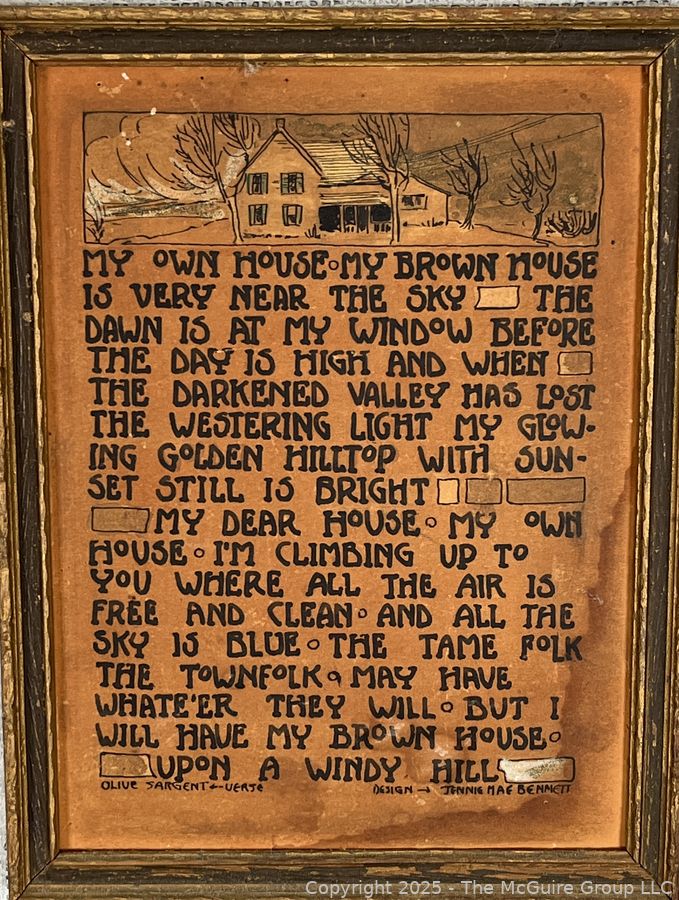 MY OWN HOUSE∘MY BROWN HOUSE
IS VERY NEAR THE SKY THE
DAWN IS AT MY WINDOW BEFORE
THE DAY IS HIGH AND WHEN
THE DARKENED VALLEY HAS LOST
THE WESTERING LIGHT MY GLOW-
ING GOLDEN HILLTOP WITH SUN-
SET STILL IS BRIGHT
MY DEAR HOUSE∘ MY OWN
HOUSE∘I'M CLIMBING UP TO
YOU WHERE ALL THE AIR IS
FREE AND CLEAN∘ AND ALL THE
SKY IS BLUE∘ THE TAME FOLK
THE TOWNFOLK∘ MAY HAVE
WHATE'ER THEY WILL∘ BUT I
WILL HAVE MY BROWN HOUSE∘
UPON A WINDY HILL
OLIVE SARGENT←VERSE DESIGN → JENNIE MAE BENNETT
Copyright 2025 - The McGuire Group LLC